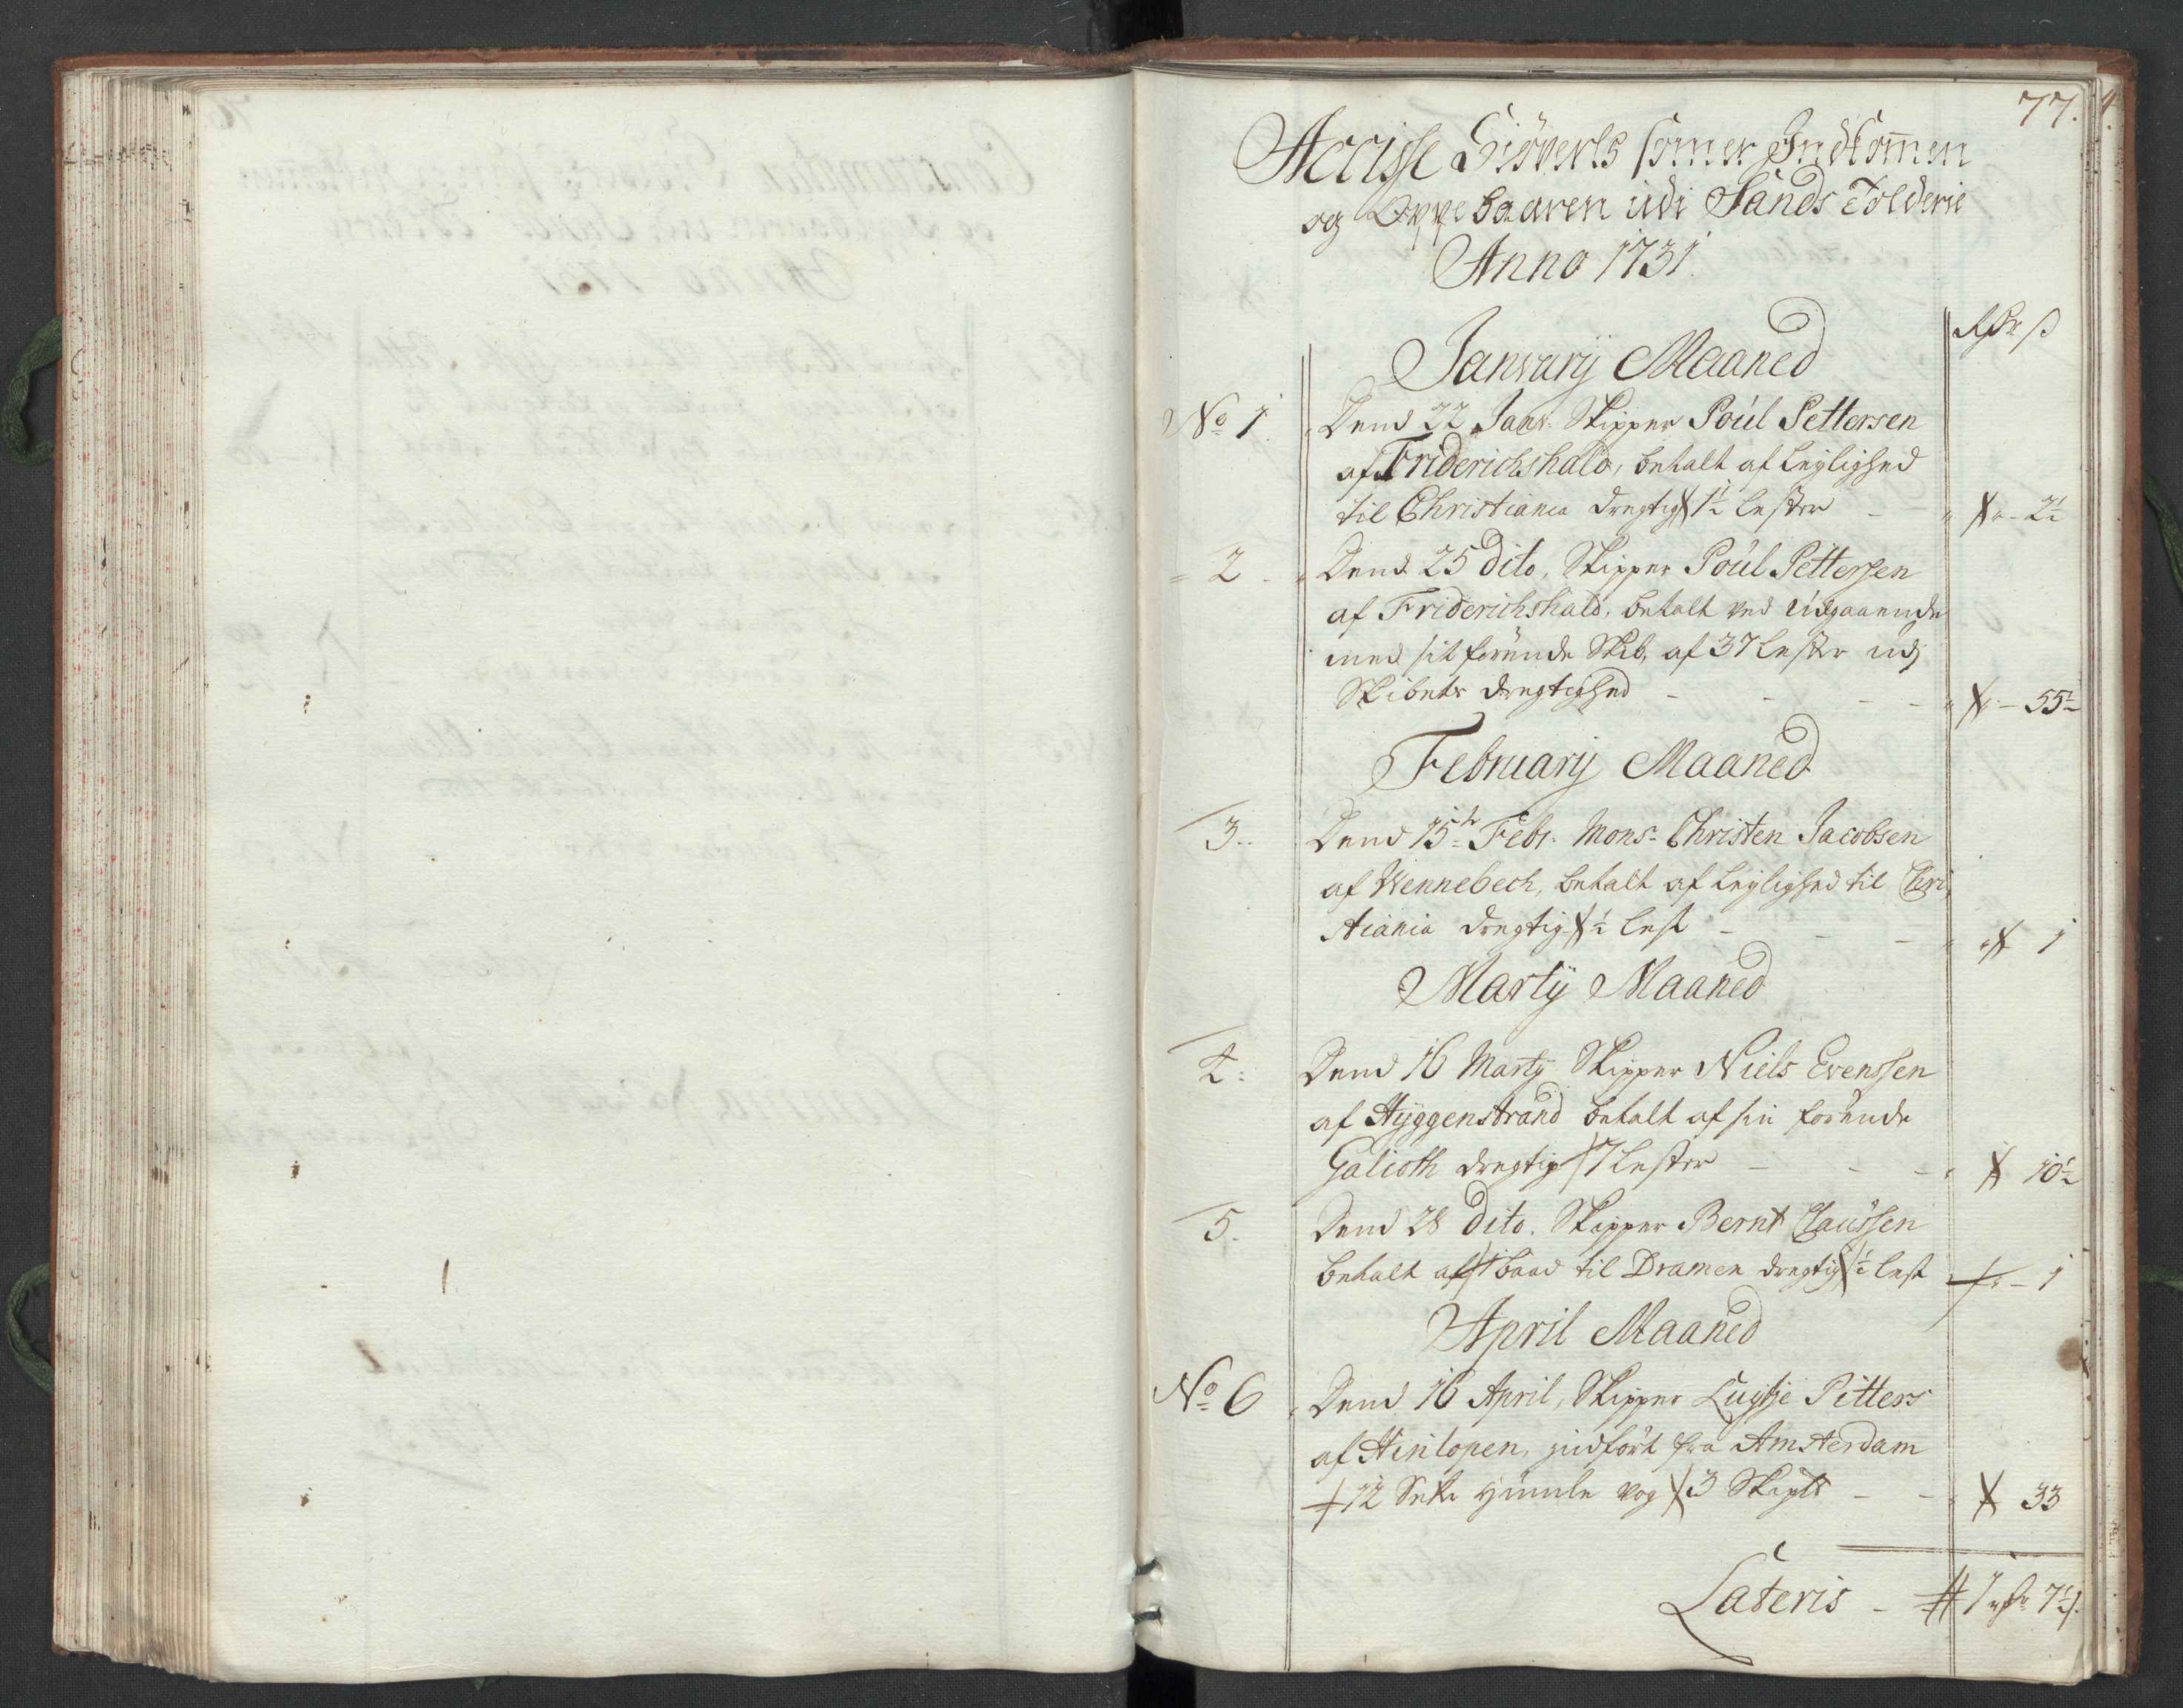 77.
Accisse som er Indkom̄en
og Oppebaaren udi Sands Tolderie
Anno 1731
Rdr ß
January Maaned
No 1. Dend 22 Janv. Skipper Poul Pettersen
af Friderichshald, betalt af Leylighed
til Christiania dregtig 1½ Lester - 2½
2. Dend 25 dito, Skipper Poul Pettersen
af Friderichshald, betalt ved Udgaaende
med sit förende Skib, af 37 Lester udj
Skibets dregtighed - 55½
February Maaned
3. Dend 15de Febr. Monsr Christen Jacobsen
af Wennebech, betalt af Leylighed til Chri
stiania dregtig ½ Lest - 1
Marty Maaned
4. Dend 16 Marty Skipper Niels Evenssen
af Hyggenstrand betalt af sin förende
Galioth dregtig 7 Lester - 10½
5. Dend 28 dito. Skipper Bernt Claussen
betalt af 1 baad til Dramen dregtig ½ Lest - 1
April Maaned
No 6. Dend 16 April, Skipper Luytje Pitters
af Hinlopen, indfört fra Amsterdam
12 Sekke Humle vog 3 Skipd - 33
Lateris - 1 Rdr 7½ ß